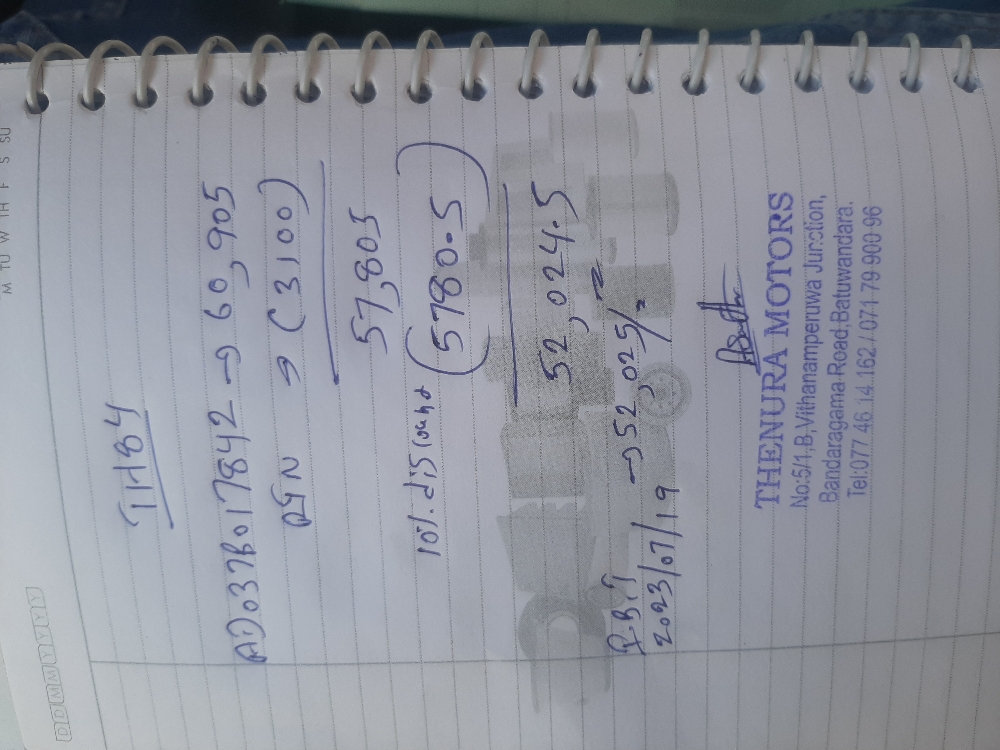 M TU W TH F S SU
DDMMYYYY
TH84
AD037B017842 → 60,905
→ (3100)
57,805
10%. discount (5780.5)
52,024.5
→ 52,025/=
2023/07/19
THENURA MOTORS
No:5/1,B,Vithanamperuwa Junction,
Bandaragama Road,Batuwandara.
Tel:077 46 14 162 / 071 79 900 96